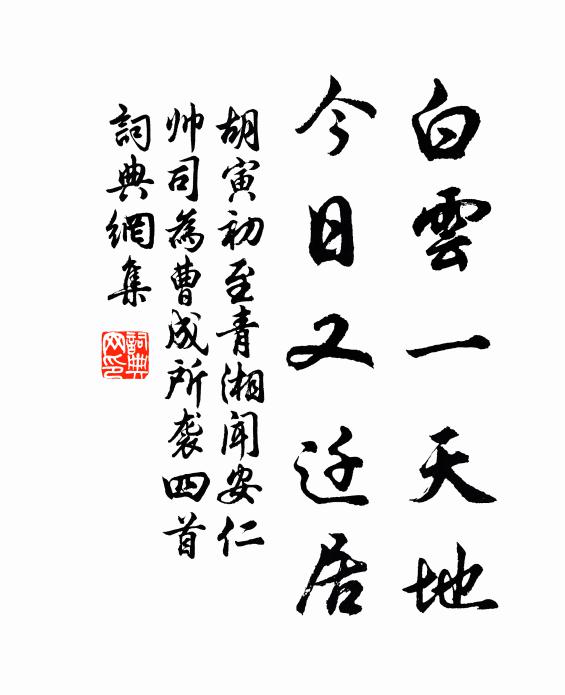 白雲一天地
今日又迁居
胡寅初至青湘闻安仁
帅司為曹成所袭四首
詞典網集
詞典
网印